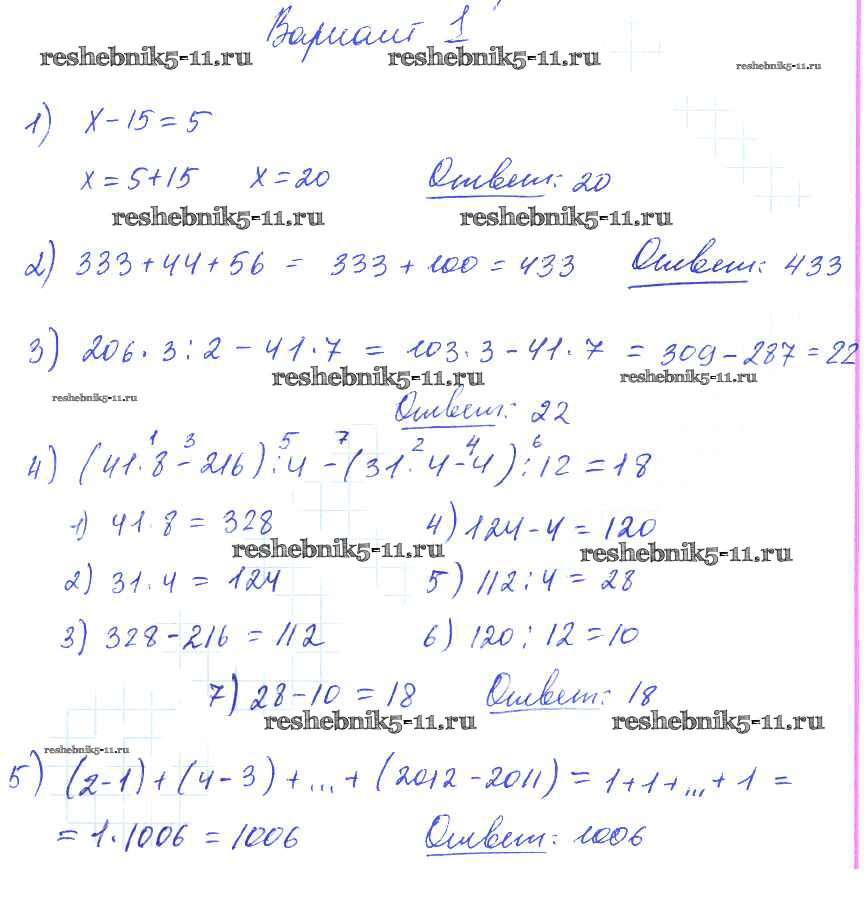 Вариант 1
reshebnik5-11.ru reshebnik5-11.ru reshebnik5-11.ru
1) x - 15 = 5
x = 5 + 15 x = 20 Ответ: 20
reshebnik5-11.ru reshebnik5-11.ru
2) 333 + 44 + 56 = 333 + 100 = 433 Ответ: 433
3) 206 · 3 : 2 - 41 · 7 = 103 · 3 - 41 · 7 = 309 - 287 = 22
reshebnik5-11.ru reshebnik5-11.ru
reshebnik5-11.ru
Ответ: 22
1 3 5 7 2 4 6
4) (41 · 8 - 216) : 4 - (31 · 4 - 4) : 12 = 18
1) 41 · 8 = 328 4) 124 - 4 = 120
reshebnik5-11.ru reshebnik5-11.ru
2) 31 · 4 = 124 5) 112 : 4 = 28
3) 328 - 216 = 112 6) 120 : 12 = 10
7) 28 - 10 = 18 Ответ: 18
reshebnik5-11.ru reshebnik5-11.ru
reshebnik5-11.ru
5) (2-1) + (4-3) + ... + (2012 - 2011) = 1 + 1 + ... + 1 =
= 1 · 1006 = 1006 Ответ: 1006